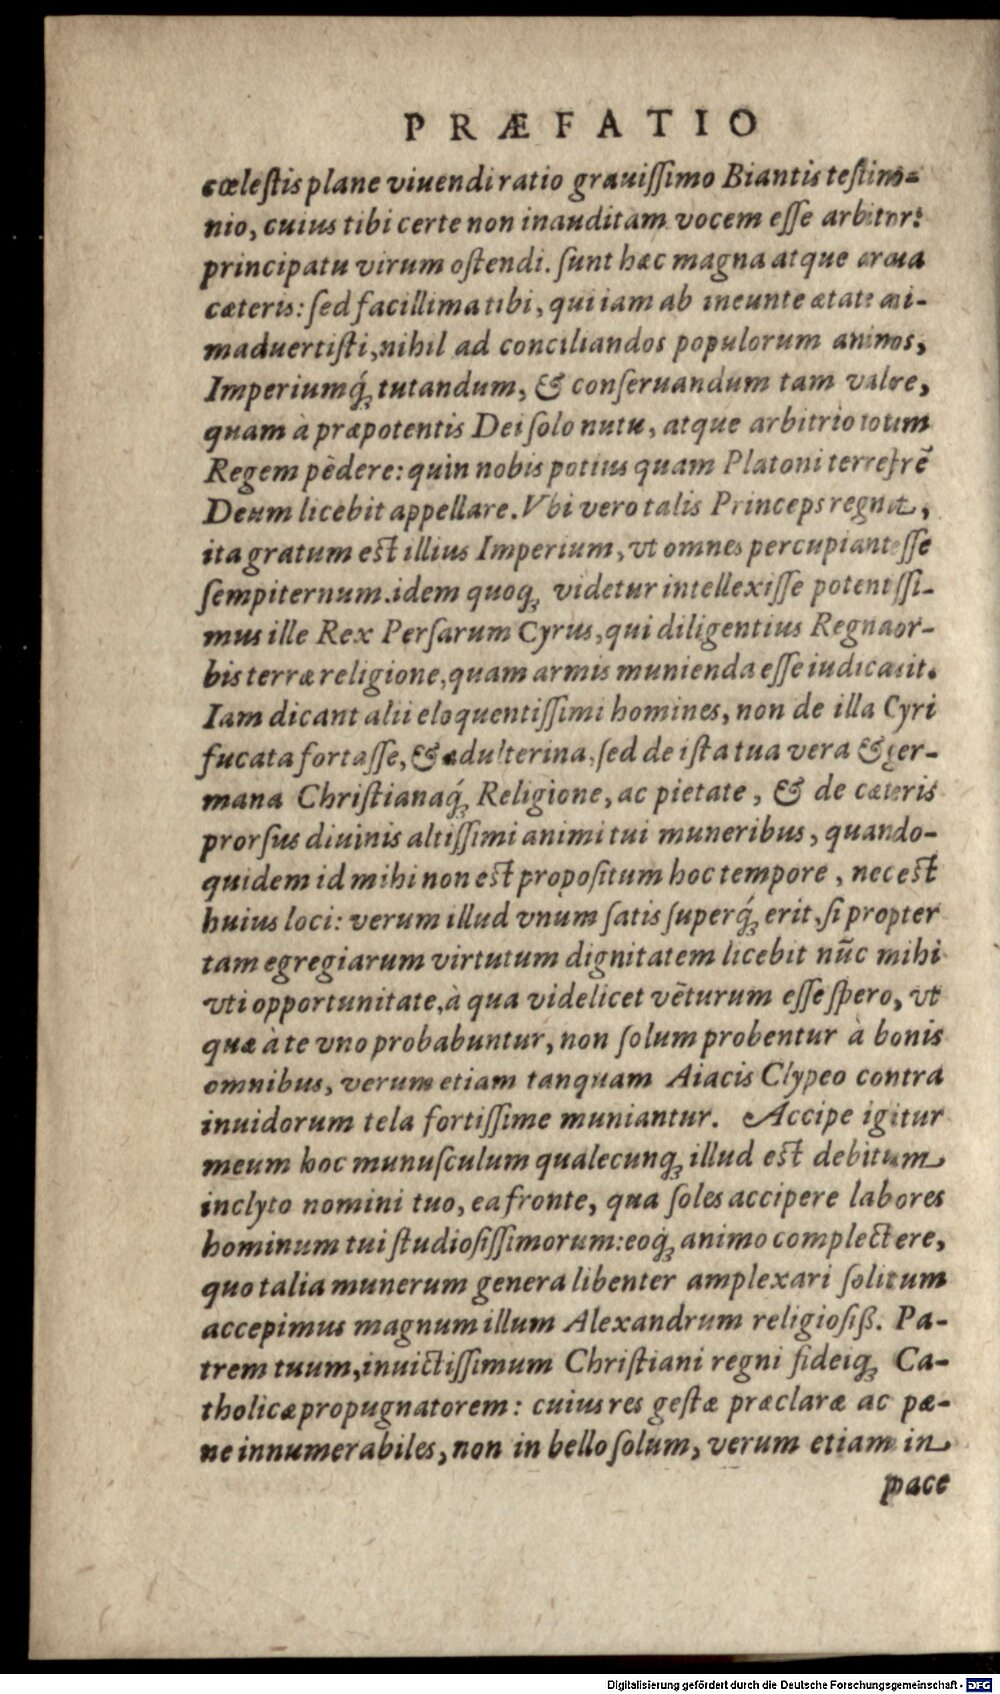 PRÆFATIO
cœleſtis plane viuendi ratio grauiſſimo Biantis teſtimo-
nio, cuius tibi certe non inauditam vocem eſſe arbitror:
principatu virum oſtendi. ſunt hæc magna atque ardua
cæteris: ſed facillima tibi, qui iam ab ineunte ætate ani-
maduertiſti, nihil ad conciliandos populorum animos,
Imperiumq́; tutandum, & conſeruandum tam valere,
quam à præpotentis Dei ſolo nutu, atque arbitrio totum
Regem pēdere: quin nobis potius quam Platoni terreſtrē
Deum licebit appellare. Vbi vero talis Princeps regnat,
ita gratum eſt illius Imperium, vt omnes percupiant eſſe
ſempiternum. idem quoq; videtur intellexiſſe potentiſſi-
mus ille Rex Perſarum Cyrus, qui diligentius Regna or-
bis terræ religione, quam armis munienda eſſe iudicauit.
Iam dicant alii eloquentiſſimi homines, non de illa Cyri
fucata fortaſſe, & adulterina, ſed de iſta tua vera & ger-
mana Chriſtianaq́; Religione, ac pietate, & de cæteris
prorſus diuinis altiſſimi animi tui muneribus, quando-
quidem id mihi non eſt propoſitum hoc tempore, nec eſt
huius loci: verum illud vnum ſatis ſuperq́; erit, ſi propter
tam egregiarum virtutum dignitatem licebit nūc mihi
vti opportunitate, à qua videlicet vēturum eſſe ſpero, vt
quæ à te vno probabuntur, non ſolum probentur à bonis
omnibus, verum etiam tanquam Aiacis Clypeo contra
inuidorum tela fortiſſime muniantur. Accipe igitur
meum hoc munuſculum qualecunq; illud eſt debitum
inclyto nomini tuo, ea fronte, qua ſoles accipere labores
hominum tui ſtudioſiſſimorum: eoq́; animo complectere,
quo talia munerum genera libenter amplexari ſolitum
accepimus magnum illum Alexandrum religioſiß. Pa-
trem tuum, inuictiſſimum Chriſtiani regni fideiq; Ca-
tholicæ propugnatorem: cuius res geſtæ præclaræ ac pæ-
ne innumerabiles, non in bello ſolum, verum etiam in
pace
Digitalisierung gefördert durch die Deutsche Forschungsgemeinschaft - DFG